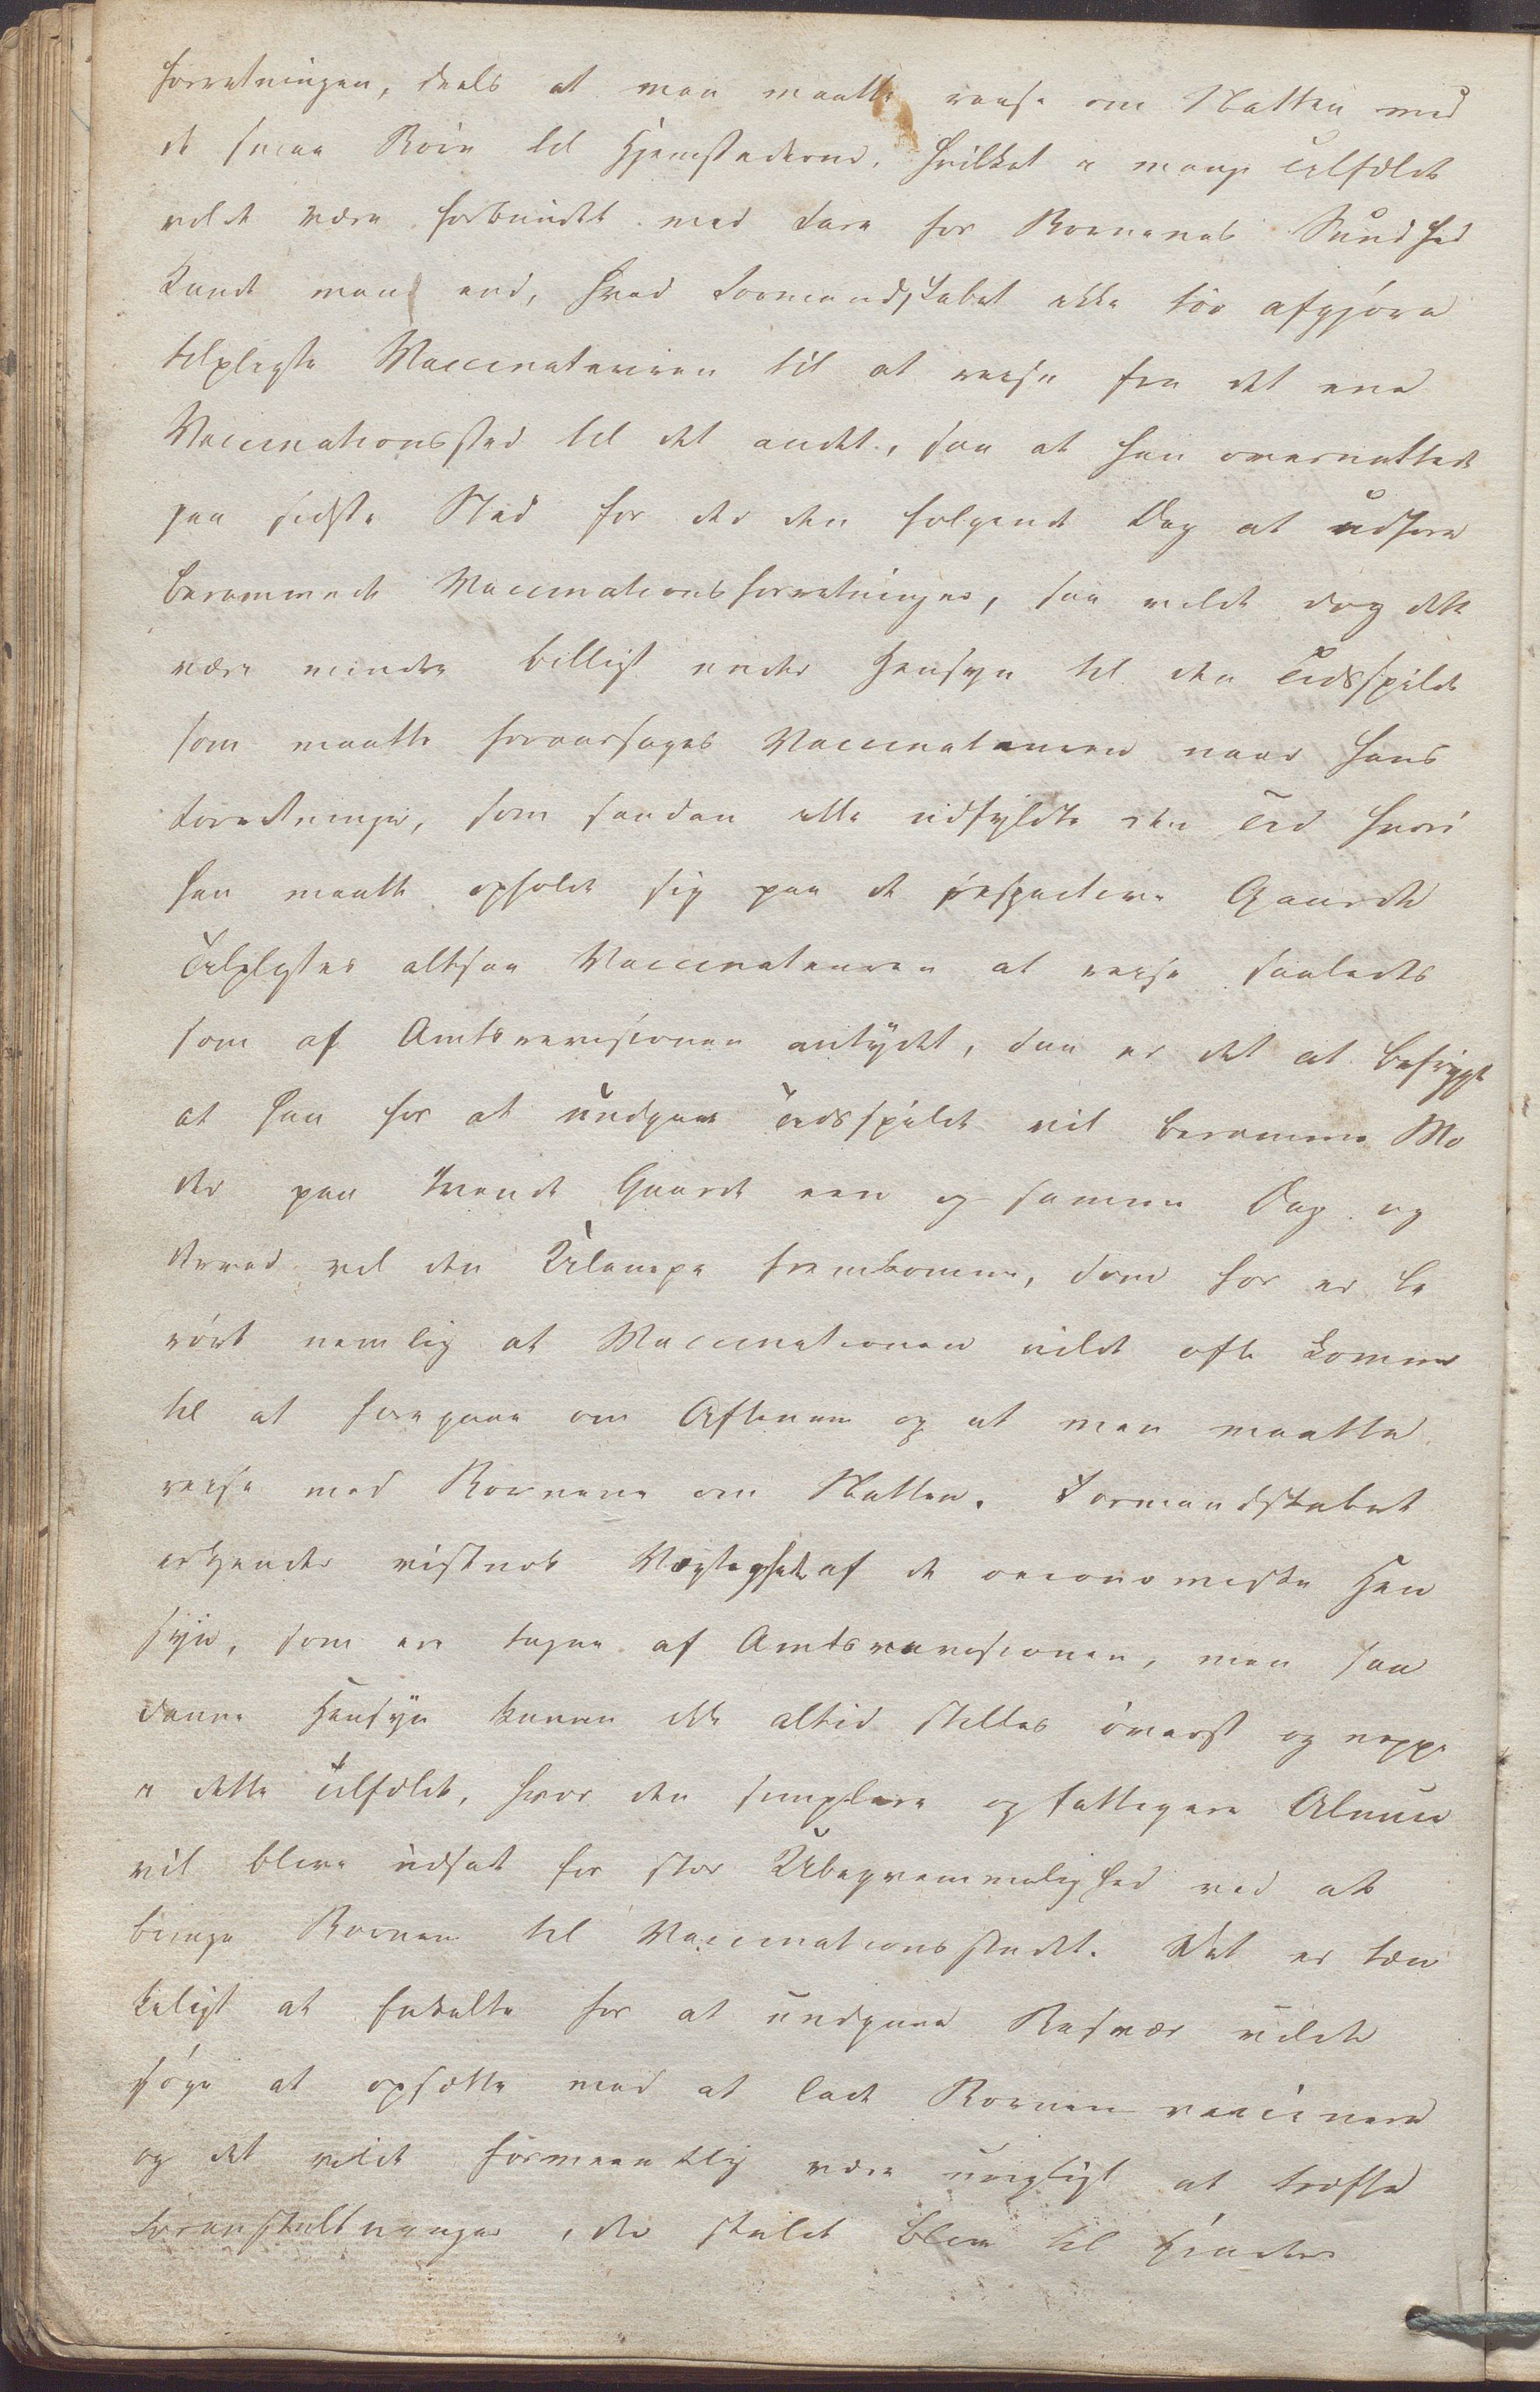 forretningen, deels at man maatte reise om Natten med
de smaa Børn til Hjemstederne, hvilket i mange Tilfælde
vilde være forbundet med Fare for Børnenes Sundhed
Kunde man end, hvad Formandskabet ikke tør afgjøre
tilpligte Vaccinateuren til at reise fra det ene
Vaccinationssted til det andet, saa at han overnattede
paa sidste Sted for der den følgende Dag at udføre
berammede Vaccinationsforretninger, saa vilde dog dette
være mindre billigt under Hensyn til den Tidsspilde
som maatte foraarsages Vaccinateuren naar hans
Forretninger, som saadan ikke udfyldte den Tid hvori
han maatte opholde sig paa de respective Gaarde
Tilpligtes altsaa Vaccinateuren at reise saaledes
som af Amtsrevisionen antydet, saa er det at befrygte
at han for at undgaae Tidsspilde vil beramme Mø
der paa tvende Gaarde een og samme Dag og
derved vil den Ulempe fremkomme, som før er be
rørt nemlig at Vaccinationen vilde ofte komme
til at foregaae om Aftenen og at man maatte
reise med Børnene om Natten. Formandskabet
erkjender vistnok Vægtighed af de oeconomiske Hen
syn, som ere tagne af Amtsrevisionen, men saa
danne Hensyn kunne ikke altid stilles øverst og neppe
i dette Tilfælde, hvor den simplere og fattigere Almue
vil blive udsat for stor Ubeqvemmelighed ved at
bringe Børnene til Vaccinationsstedet. Det er tæn
keligt at enkelte for at undgaae Besvær vilde
søge at opsætte med at lade Børnene vaccinere
og det vilde formeentlig være urigtigt at træffe
Foranstaltninger, der skulde blive til Hinder